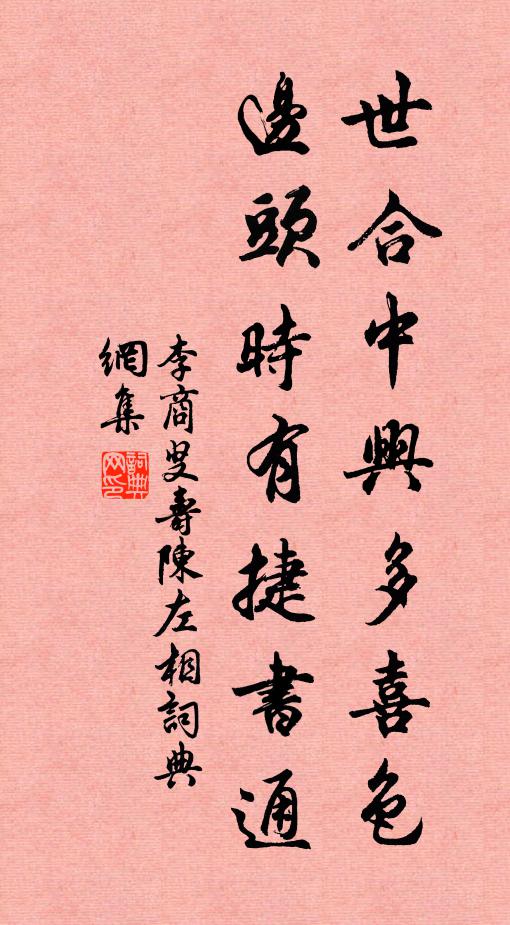 世合中興多喜色
邊頭時有捷書通
李商叟壽陳左相詞典
網集
詞典網印